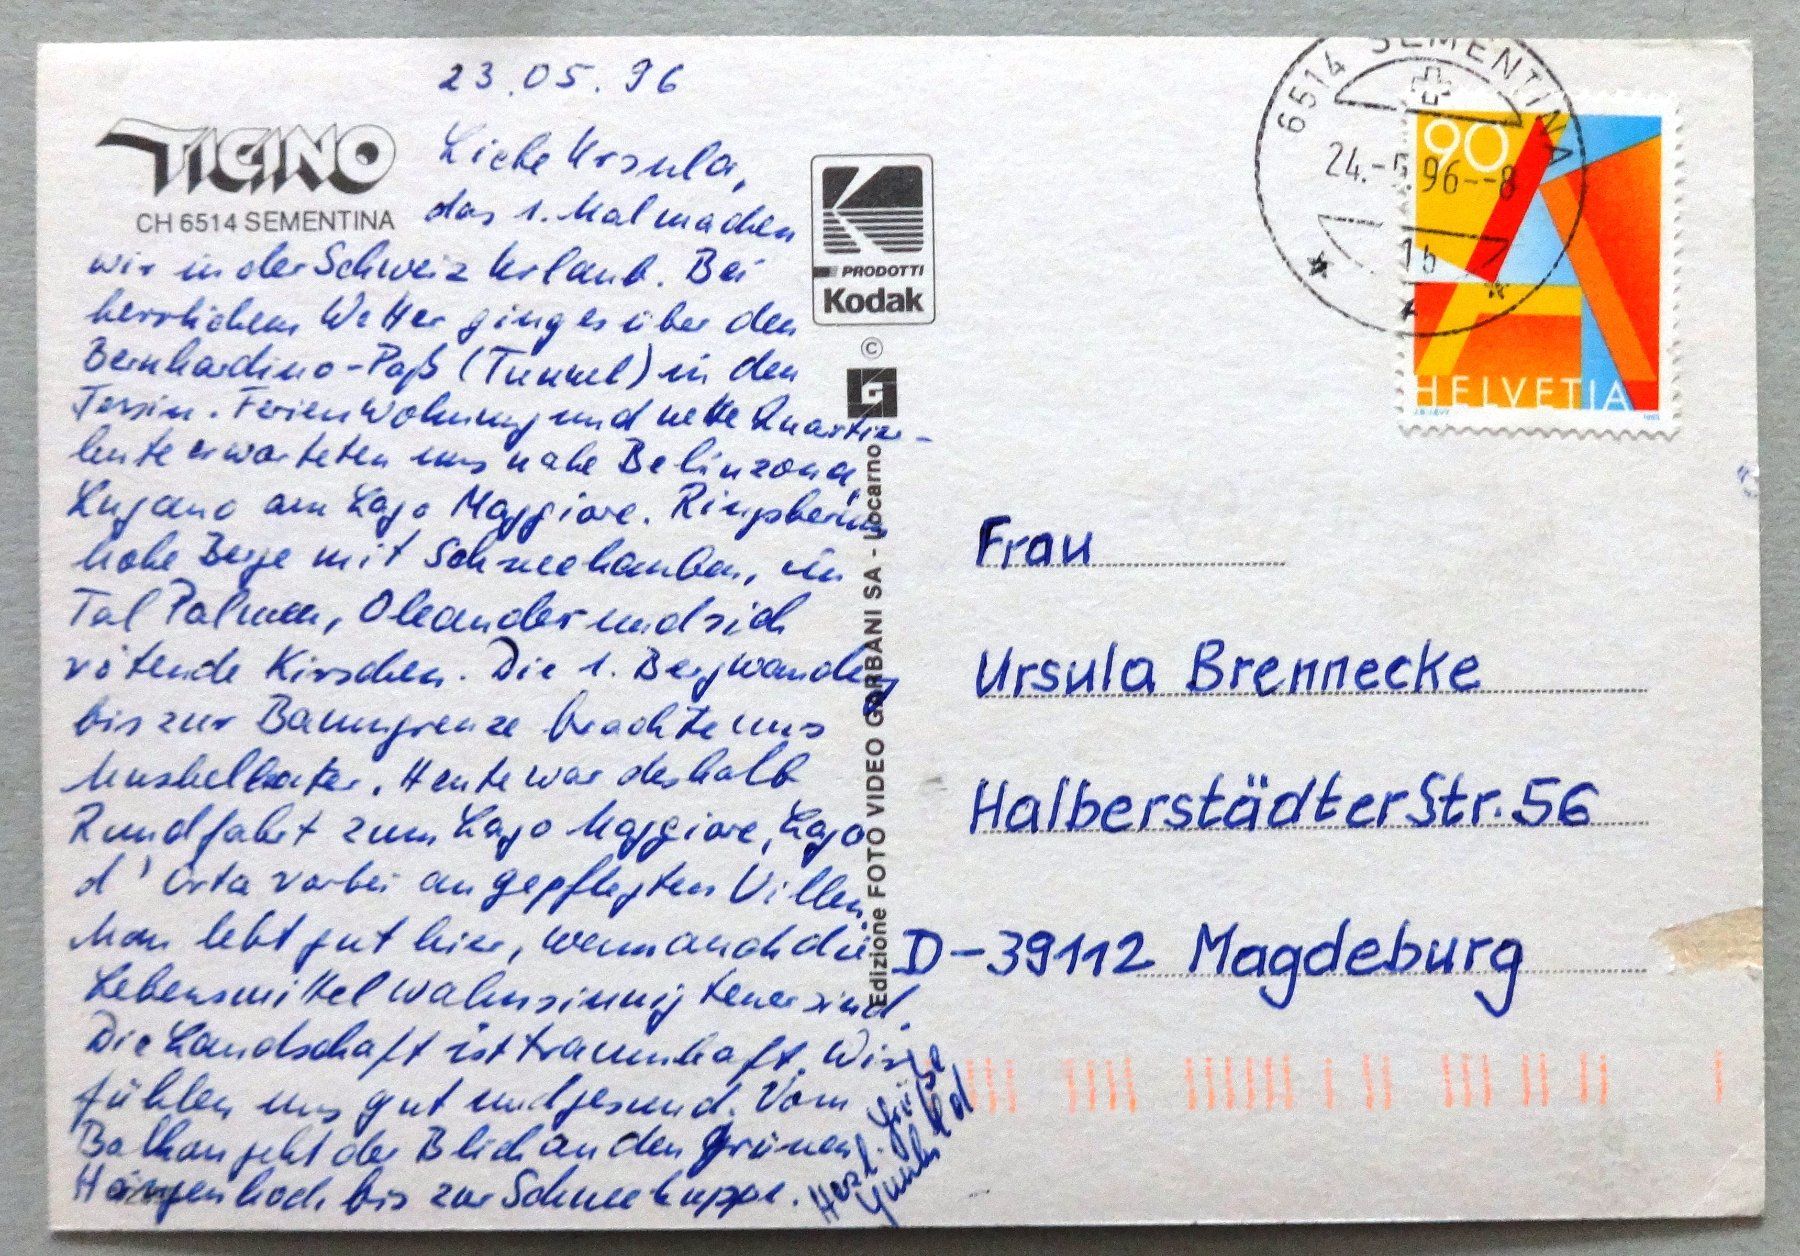 23.05.96
TICINO
CH 6514 SEMENTINA
Liebe Ursula,
das 1. Mal machen
wir in der Schweiz Urlaub. Bei
herrlichem Wetter ging es über den
Bernhardino-Paß (Tunnel) in den
Tessin. Ferienwohnung und nette Quartier-
leute erwarteten uns nahe Belinzona,
Lugano am Lago Maggiore. Ringsherum
hohe Berge mit Schneehauben, im
Tal Palmen, Oleander und sich
rötende Kirschen. Die 1. Bergwanderg
bis zur Baumgrenze brachte uns
Muskelkater. Heute war deshalb
Rundfahrt zum Lago Maggiore, Lago
d'Orta vorbei an gepflegten Villen.
Man lebt gut hier, wenn auch die
Lebensmittel wahnsinnig teuer sind.
Die Landschaft ist traumhaft. Wir
fühlen uns gut und gesund. Vom
Balkon geht der Blick an den grünen
Hängen hoch bis zur Schneekuppe.
Herzl. Grüße
Gunhild
PRODOTTI
Kodak
©
Edizione FOTO VIDEO GARBANI SA - Locarno
6514 SEMENTINA
24.-5.96--8
1b
90
A
HELVETIA
Frau
Ursula Brennecke
Halberstädter Str. 56
D-39112 Magdeburg